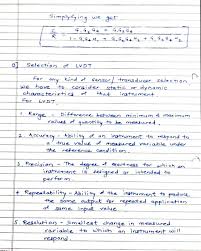 Simplifying we get
C/R = G₁G₂G₄ + G₁G₃G₄
1 - G₁G₄H₁ + G₁G₂G₄H₂ + G₁G₃G₄H₂
Q] Selection of LVDT
For any kind of sensor/transducer selection
we have to consider static or dynamic
characteristics of that instrument
For LVDT.
1. Range - Difference between minimum & maximum
values of quantity to be measured.
2. Accuracy - Ability of an instrument to respond to
a true value of measured variable under
the reference condition.
3. Precision - The degree of exactness for which an
instrument is designed or intended to
perform.
4 Repeatability - Ability of the instrument to produce
the same output for repeated application
of same input value
5 Resolution - Smallest change in measured
variable to which an instrument will
respond